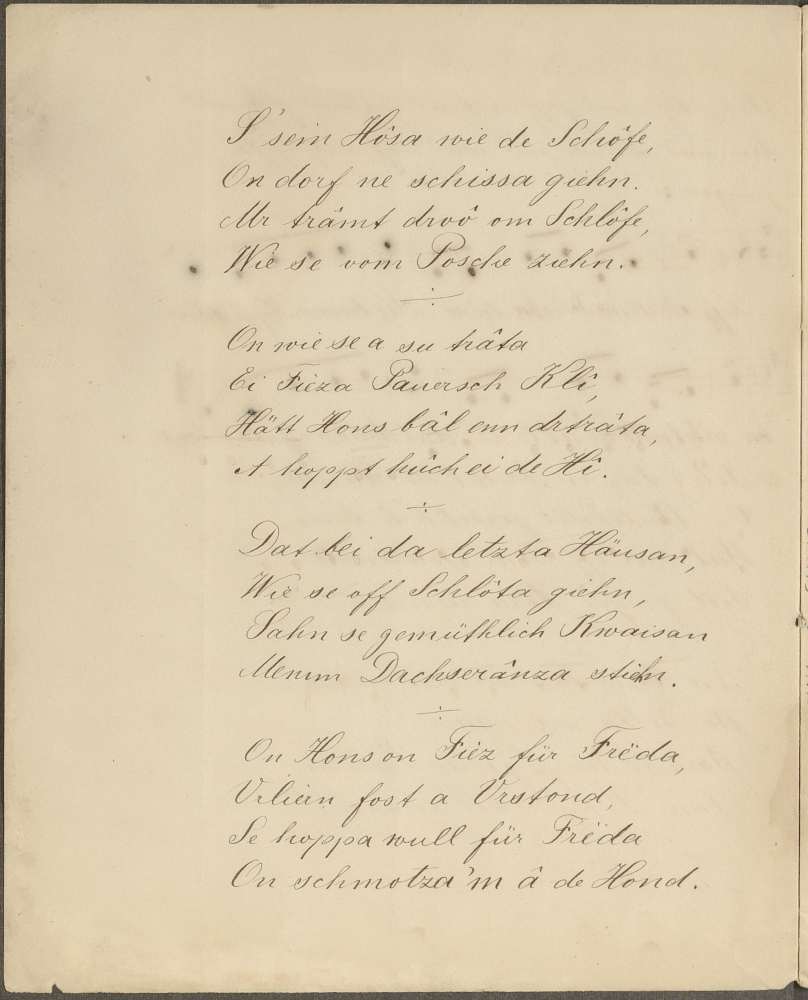 S'sein Hôsa wie de Schôfe,
On dorf ne schissa giehn.
Mr trämt drvô om Schlôfe,
Wie se vom Posche ziehn.
÷
On wie se a su trâta
Ei Fieza Pauersch Klî,
Hätt Hons bâl enn drtrâta,
A hoppt hûch ei de Hî.
÷
Dat bei da letzta Häusan,
Wie se off Schlôta giehn,
Sahn se gemüthlich Kwaisan
Menm Dachserânza stiehn.
÷
On Hons on Fiez für Frëda,
Vrliern fost a Vrstond,
Se hoppa wull für Frëda
On schmotza'm â de Hond.